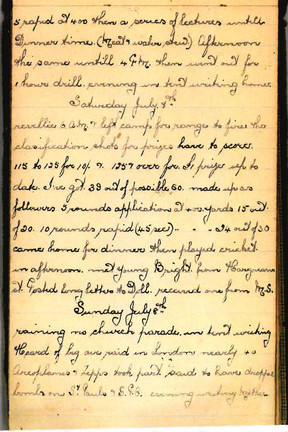 5 rapid at 400 then a series of lectures untill
Dinner time. (Meat & water, stew) Afternoon
the same untill 4 P.M. then went out for
1 hours drill. evening in tent writing home.
Saturday July 7th
revellie 6 A.M. & left camp for range to fire the
classification shots for prizes have to score
115 to 125 for 10/- & 125 & over for £1 prize up to
date I've got 38 out of possible 50. made up as
followers 5 rounds application at yards 15 out
of 20. 10 rounds rapid (45 sec) - - - 24 out of 30
came home for dinner then played cricket
in afternoon. met young Bright from
at. Posted long letters to Dell. received one from M.S.
Sunday July 8th
raining no church parade. in tent writing
Heard of big air raid in London nearly 40
Aeroplanes & Zepps took part said to have dropped
bombs on St Pauls & G.P.O. evening writing Mother